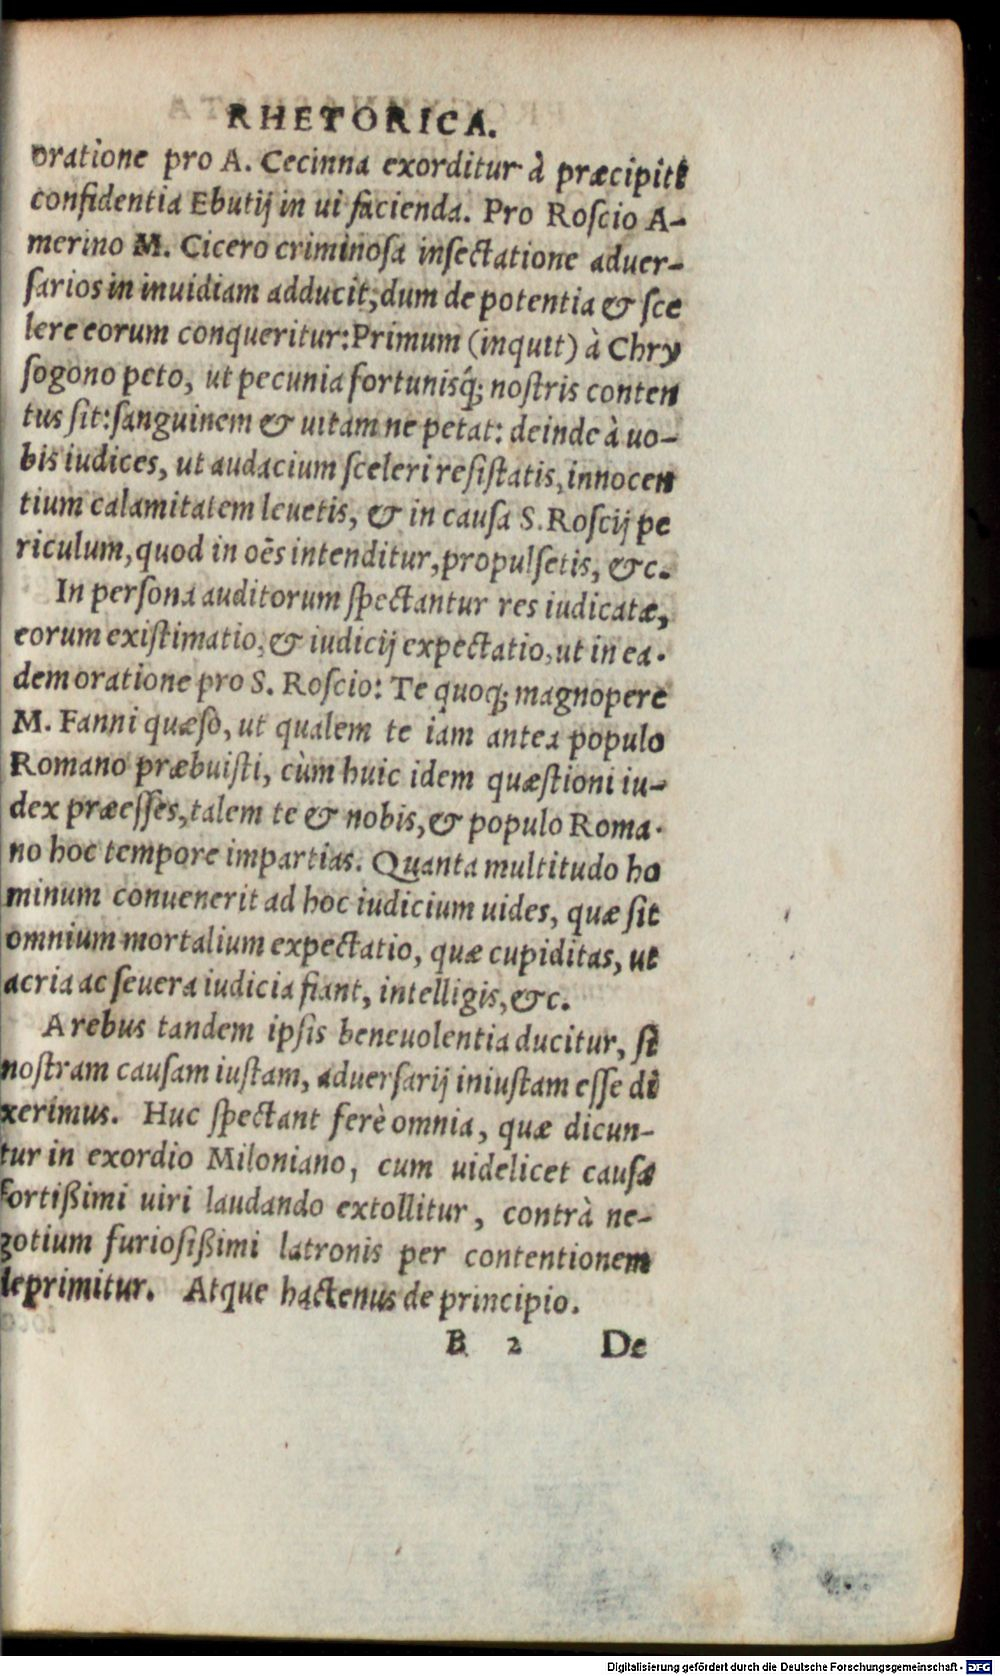 RHETORICA.
oratione pro A. Cecinna exorditur à præcipiti
confidentia Ebutij in ui facienda. Pro Roſcio A-
merino M. Cicero criminoſa inſectatione aduer-
ſarios in inuidiam adducit, dum de potentia & ſce
lere eorum conqueritur: Primum (inquit) à Chry
ſogono peto, ut pecunia fortunisq́; noſtris conten
tus ſit: ſanguinem & uitam ne petat: deinde à uo-
bis iudices, ut audacium ſceleri reſiſtatis, innocen
tium calamitatem leuetis, & in cauſa S. Roſcij pe
riculum, quod in oẽs intenditur, propulſetis, &c.
In perſona auditorum ſpectantur res iudicatæ,
eorum exiſtimatio, & iudicij expectatio, ut in ea-
dem oratione pro S. Roſcio: Te quoq; magnopere
M. Fanni quæſo, ut qualem te iam antea populo
Romano præbuiſti, cùm huic idem quæſtioni iu-
dex præeſſes, talem te & nobis, & populo Roma-
no hoc tempore impartias. Quanta multitudo ho
minum conuenerit ad hoc iudicium uides, quæ ſit
omnium mortalium expectatio, quæ cupiditas, ut
acria ac ſeuera iudicia fiant, intelligis, &c.
A rebus tandem ipſis beneuolentia ducitur, ſi
noſtram cauſam iuſtam, aduerſarij iniuſtam eſſe di
xerimus. Huc ſpectant ferè omnia, quæ dicun-
tur in exordio Miloniano, cum uidelicet cauſa
fortißimi uiri laudando extollitur, contrà ne-
gotium furioſißimi latronis per contentionem
deprimitur. Atque hactenus de principio.
B 2 De
Digitalisierung gefördert durch die Deutsche Forschungsgemeinschaft - DFG